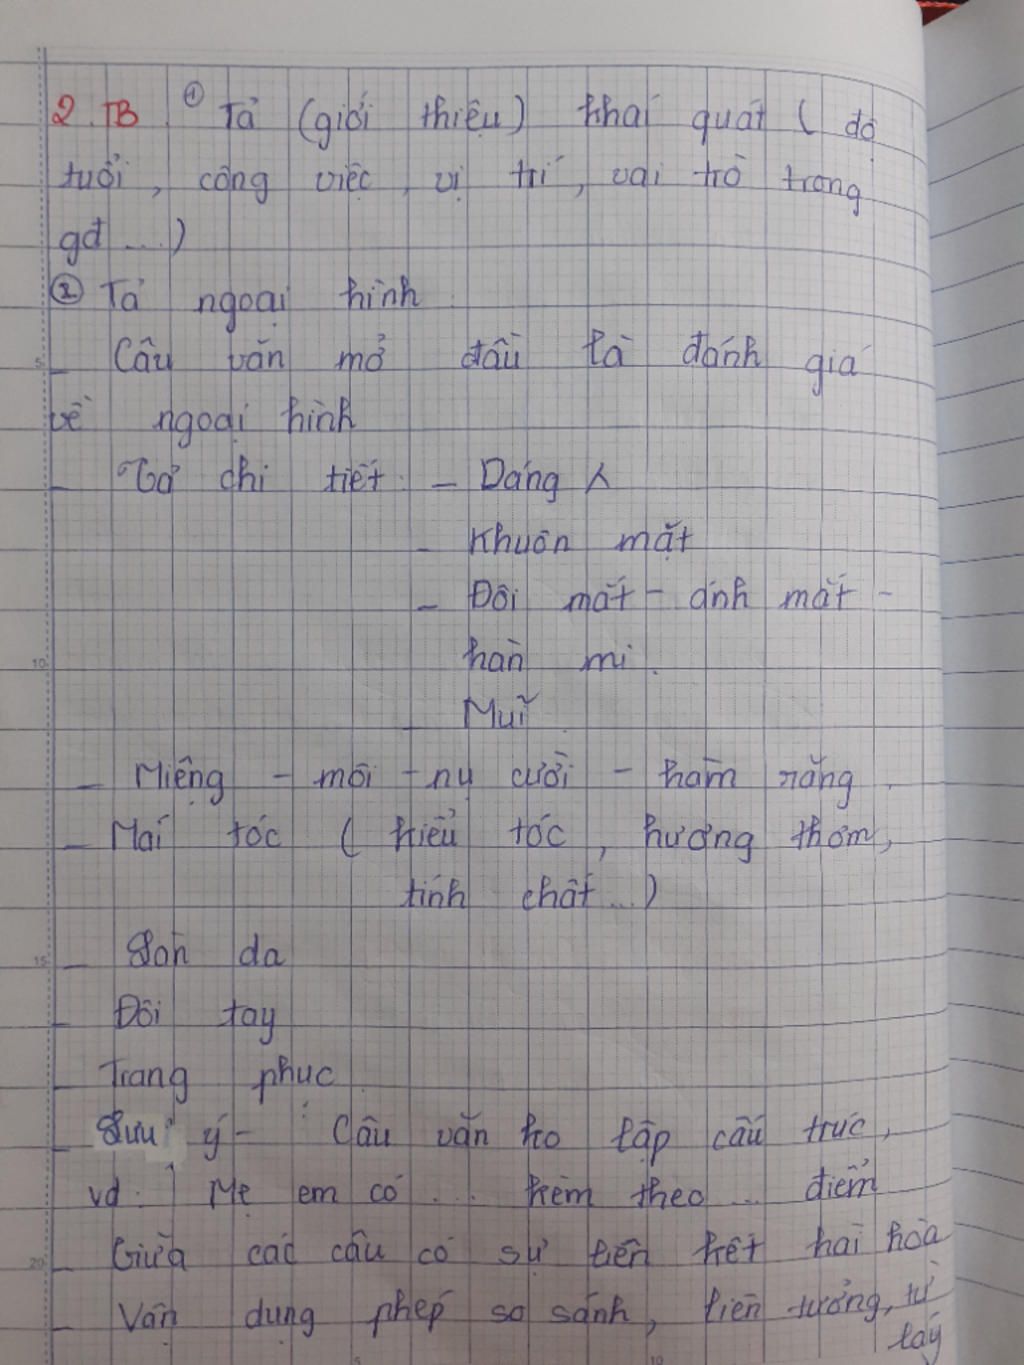 2. TB ① Tả (giới thiệu) khái quát ( độ
tuổi, công việc, vị trí, vai trò trong
gđ ....)
② Tả ngoại hình
- Câu văn mở đầu là đánh giá
về ngoại hình
- Gợi chi tiết: - Dáng
- Khuôn mặt
- Đôi mắt - ánh mắt -
hàn mi.
- Mũi
- Miệng - môi - nụ cười - hàm răng.
- Mái tóc ( kiểu tóc, hương thơm,
tính chất...)
- Làn da
- Đôi tay
- Trang phục
- Lưu ý - Câu văn ko lặp cấu trúc,
vd: Mẹ em có ... kèm theo ... điểm
- Giữa các câu có sự liên kết hài hòa
- Vận dụng phép so sánh, liên tưởng, từ
láy